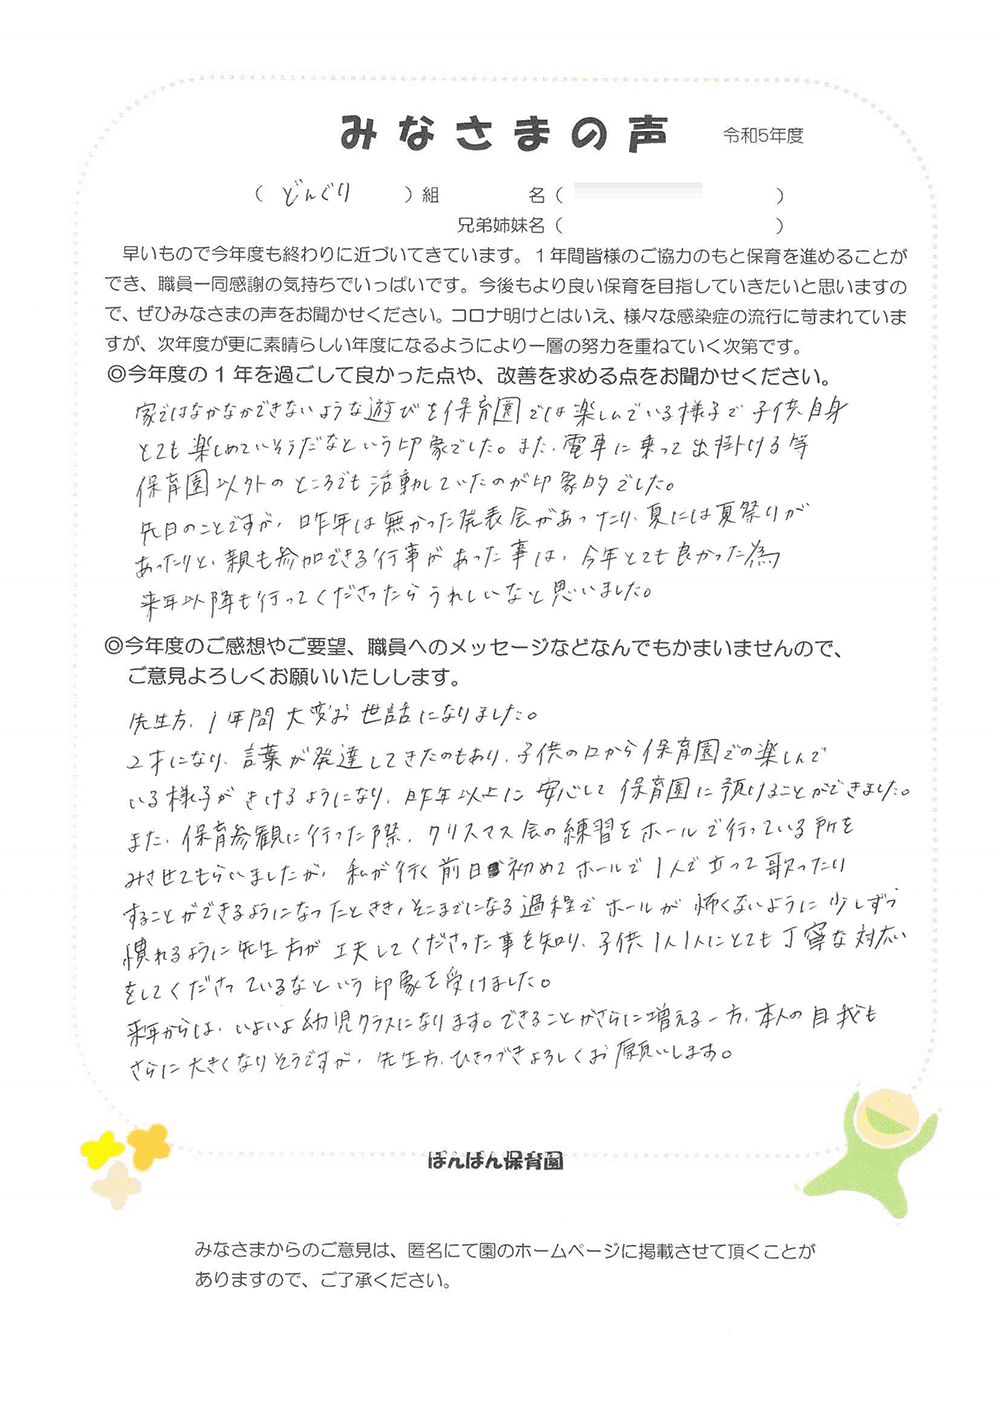 みなさまの声 令和5年度
（ どんぐり ）組 名（ ）
兄弟姉妹名（ ）
早いもので今年度も終わりに近づいてきています。１年間皆様のご協力のもと保育を進めることが
でき、職員一同感謝の気持ちでいっぱいです。今後もより良い保育を目指していきたいと思いますの
で、ぜひみなさまの声をお聞かせください。コロナ明けとはいえ、様々な感染症の流行に苛まれていま
すが、次年度が更に素晴らしい年度になるようにより一層の努力を重ねていく次第です。
◎今年度の１年を過ごして良かった点や、改善を求める点をお聞かせください。
家ではなかなかできないような遊びを保育園では楽しんでいる様子で子供自身
とても楽しめていそうだなという印象でした。また、電車に乗って出掛ける等
保育園以外のところでも活動していたのが印象的でした。
先日のことですが、昨年は無かった発表会があったり、夏には夏祭りが
あったりと、親も参加できる行事があった事は、今年とても良かった為
来年以降も行ってくださったらうれしいなと思いました。
◎今年度のご感想やご要望、職員へのメッセージなどなんでもかまいませんので、
ご意見よろしくお願いいたしします。
先生方、1年間大変お世話になりました。
2才になり、言葉が発達してきたのもあり、子供の口から保育園での楽しんで
いる様子がきけるようになり、昨年以上に安心して保育園に預けることができました。
また、保育参観に行った際、クリスマス会の練習をホールで行っている所を
みさせてもらいましたが、私が行く前日初めてホールで1人で立って歌ったり
することができるようになったとききそこまでになる過程でホールが怖くないように少しずつ
慣れるように先生方が工夫してくださった事を知り、子供1人1人にとても丁寧な対応
をしてくださっているなという印象を受けました。
来年からは、いよいよ幼児クラスになります。できることがさらに増える一方、本人の自我も
さらに大きくなりそうですが、先生方、ひきつづきよろしくお願いします。
ぽんぽん保育園
みなさまからのご意見は、匿名にて園のホームページに掲載させて頂くことが
ありますので、ご了承ください。